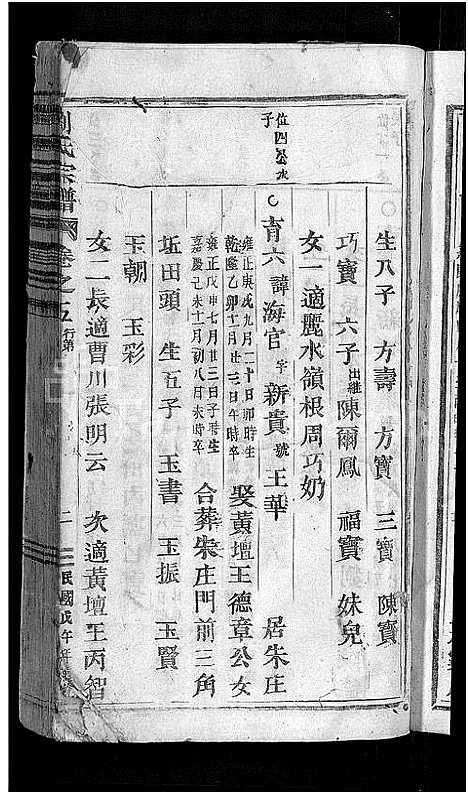 生八子 方壽 方寶 三寶 陳寶
巧寶 六子出繼陳爾鳳 福寶 妹兒
女一適麗水嶺根周巧奶
位四公水子
育六諱海官字新貴號王華 居朱庄
雍正庚戌九月二十日卯時生
乾隆乙卯十月廿三日午時卒
娶黃壇王德章公女
雍正戊申七月廿三日子時生
嘉慶己未十月初八日亥時卒
合葬朱庄門前三角
坵田頭 生五子 玉書 玉振 玉賢
玉朝 玉彩
女二長適曹川張明云 次適黃壇王丙智
氏宗譜 卷之五 行第 民國戊午年